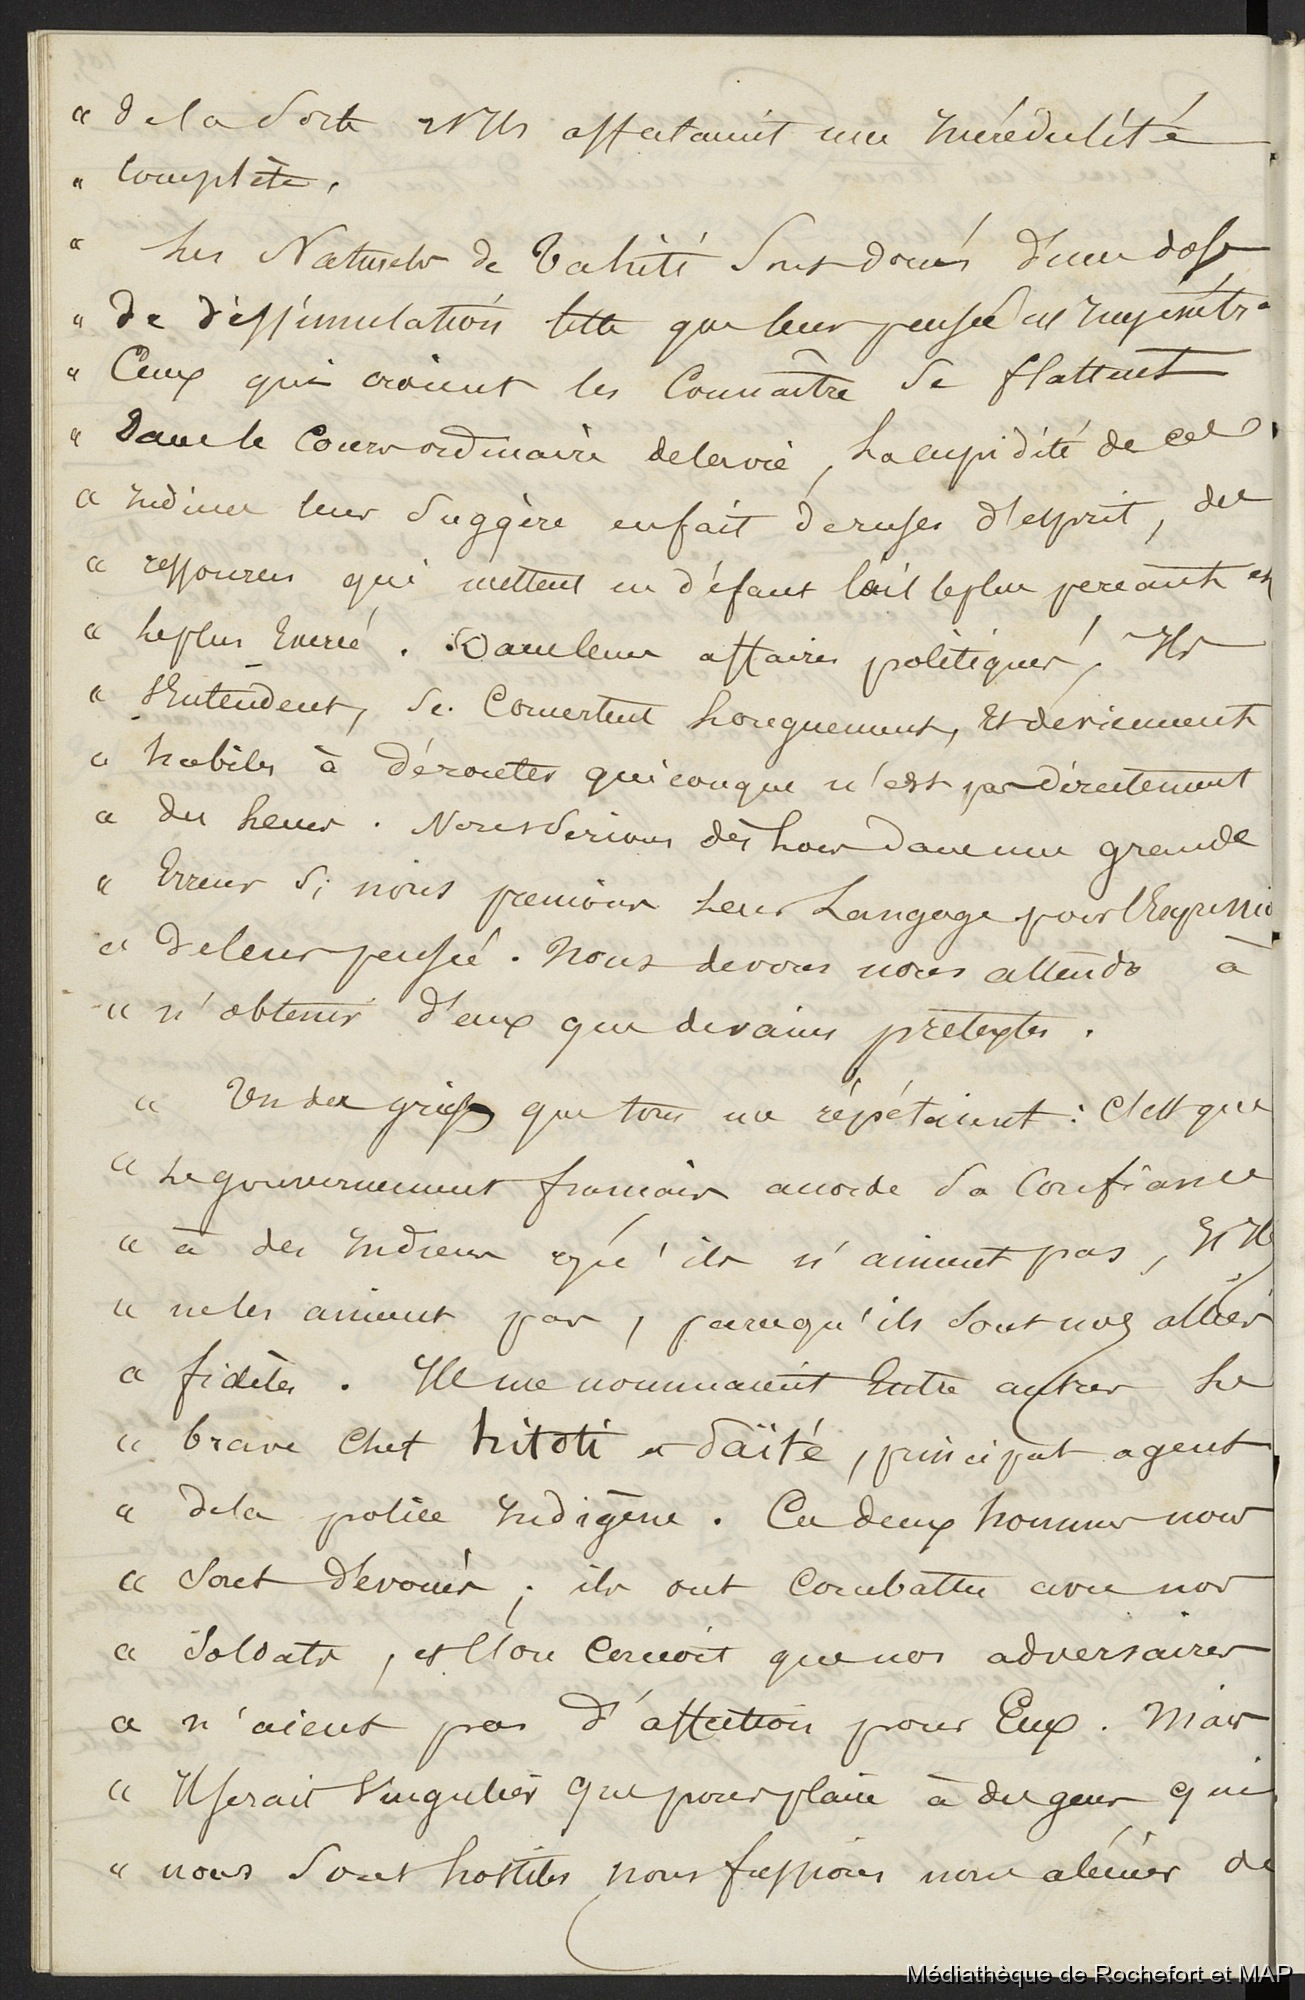 « de la sorte et ils affectaient une Incrédulité
« Complète.
« Les Naturels de Tahiti sont doués d'une dose
« de dissimulation telle que leur pensée est Impénétr.
« Ceux qui croient les Connaître se flattent
« Dans le Cours ordinaire de la vie, la cupidité de ces
« Indiens leur Suggère en fait de ruses d'esprit, des
« ressources qui mettent en défaut l'œil le plus perçant et
« le plus Exercé. Dans leurs affaires politiques, Ils
« s'Entendent, se Concertent longuement, Et deviennent
« habiles à dérouter quiconque n'est pas directement
« des leurs. Nous serions dès lors dans une grande
« Erreur si nous prenions leur Langage pour l'Expressio
« de leur pensée. Nous devons nous attendre à
« n'obtenir d'eux que de vains prétextes.
« Un des griefs que tous me répétaient : C'est que
« le gouvernement français accorde sa Confiance
« à des Indiens qu'ils n'aiment pas, Et Ils
« ne les aiment pas, parce qu'ils sont nos alliés
« fidèles. Ils me nommaient Entre autres le
« brave Chef hitoti et Taïté, principal agent
« de la police Indigène. Ces deux hommes nous
« sont dévoués ; ils ont Combattu avec nos
« Soldats, et l'on Conçoit que nos adversaires
« n'aient pas d'affection pour Eux. Mais
« Il serait Singulier que pour plaire à des gens qui
« nous sont hostiles nous fussions nous aliéner de
Médiathèque de Rochefort et MAP